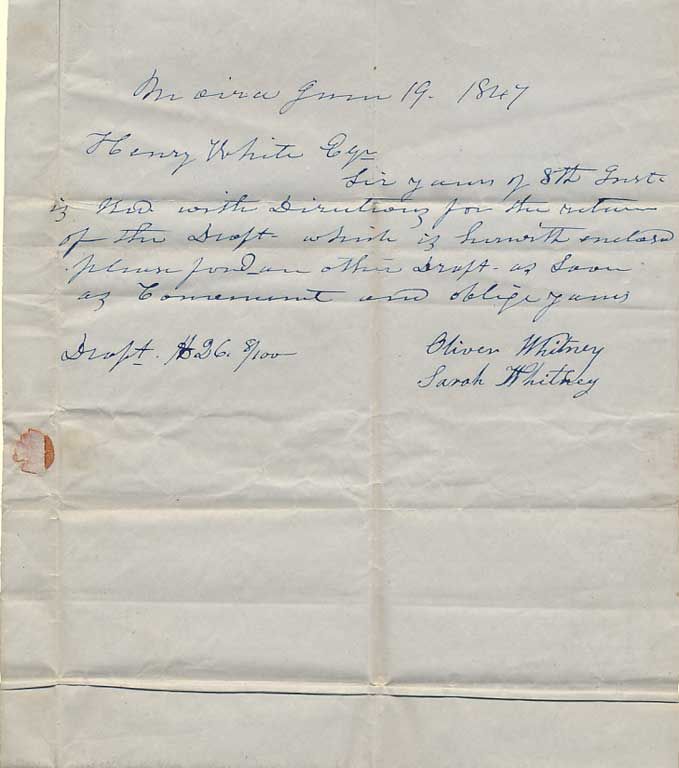 Moira June 19. 1847
Henry White Eqr
Sir yours of 8th Inst.
is Rcd with Directions for the return
of the Draft which is herwith enclosd
please for an other Draft as Soon
as Convenient and oblige yours
Draft. $26. 8/100
Oliver Whitney
Sarah Whitney